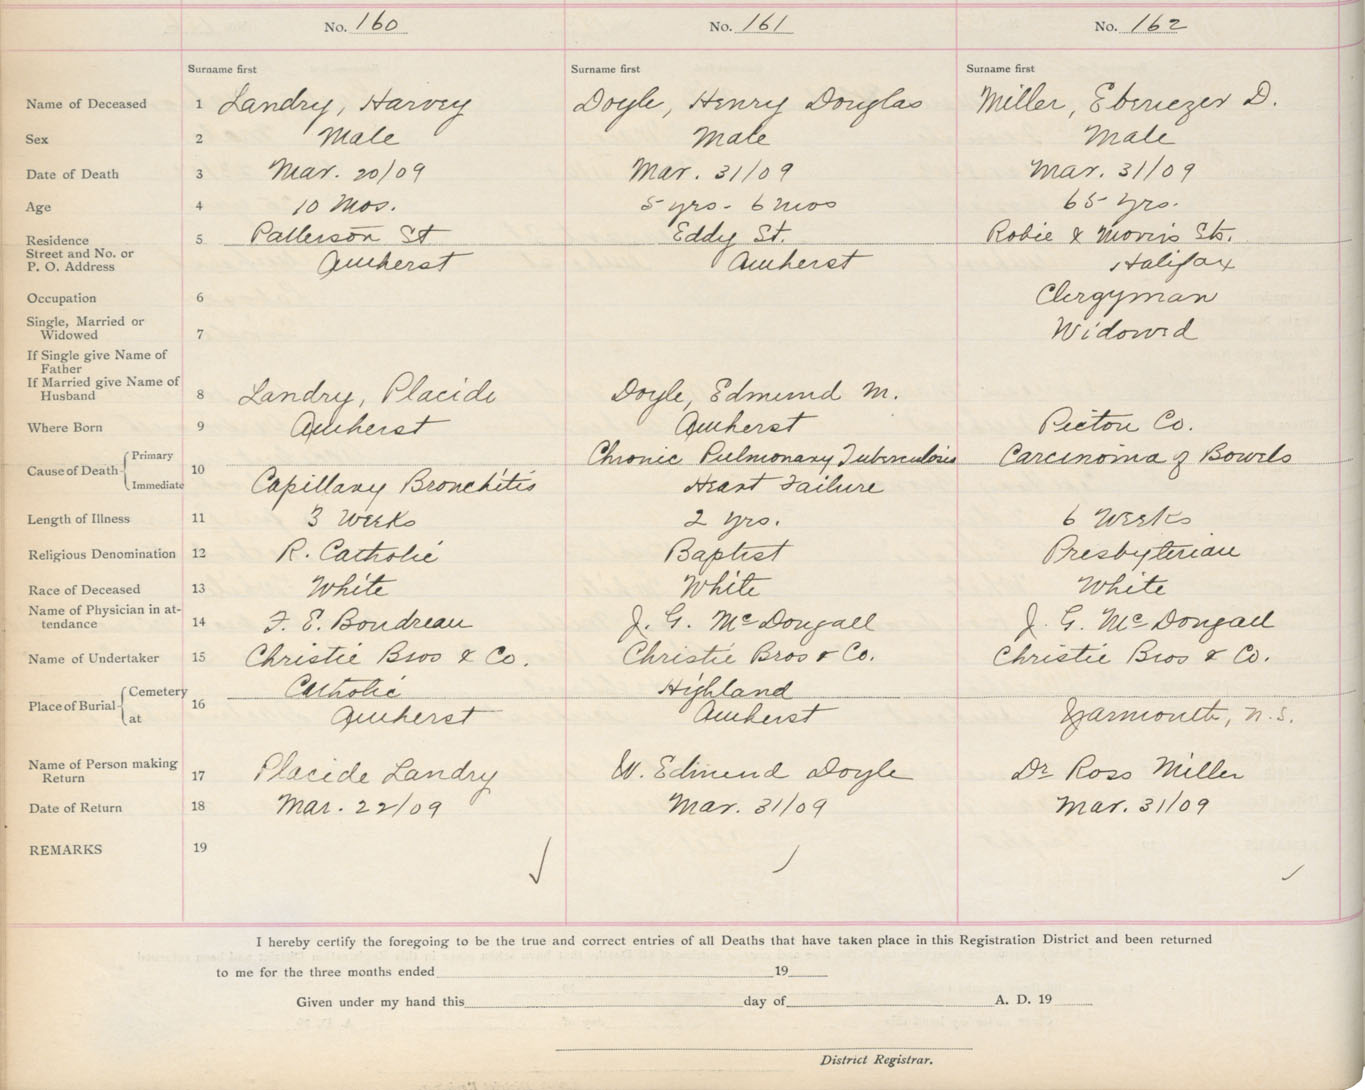 No. 160 No. 161 No. 162
Surname first Surname first Surname first
Name of Deceased 1 Landry, Harvey Doyle, Henry Douglas Miller, Ebenezer D.
Sex 2 Male Male Male
Date of Death 3 Mar. 20/09 Mar. 31/09 Mar. 31/09
Age 4 10 Mos. 5 yrs - 6 mos 65 yrs.
Residence 5 Patterson St Eddy St. Robie & Morris Sts.
Street and No. or
P. O. Address Amherst Amherst Halifax
Occupation 6 Clergyman
Single, Married or
Widowed 7 Widowed
If Single give Name of
Father
If Married give Name of
Husband 8 Landry, Placide Doyle, Edmund M.
Where Born 9 Amherst Amherst Pictou Co.
Cause of Death Primary 10 Chronic Pulmonary Tuberculosis Carcinoma of Bowels
Immediate Capillary Bronchitis Heart Failure
Length of Illness 11 3 Weeks 2 yrs. 6 Weeks
Religious Denomination 12 R. Catholic Baptist Presbyterian
Race of Deceased 13 White White White
Name of Physician in at-
tendance 14 F. E. Boudreau J. G. McDougall J. G. McDougall
Name of Undertaker 15 Christie Bros & Co. Christie Bros & Co. Christie Bros & Co.
Place of Burial Cemetery 16 Catholic Highland
at Amherst Amherst Yarmouth, N.S.
Name of Person making
Return 17 Placide Landry W. Edmund Doyle Dr Ross Miller
Date of Return 18 Mar. 22/09 Mar. 31/09 Mar. 31/09
REMARKS 19
I hereby certify the foregoing to be the true and correct entries of all Deaths that have taken place in this Registration District and been returned
to me for the three months ended 19
Given under my hand this day of A. D. 19
District Registrar.